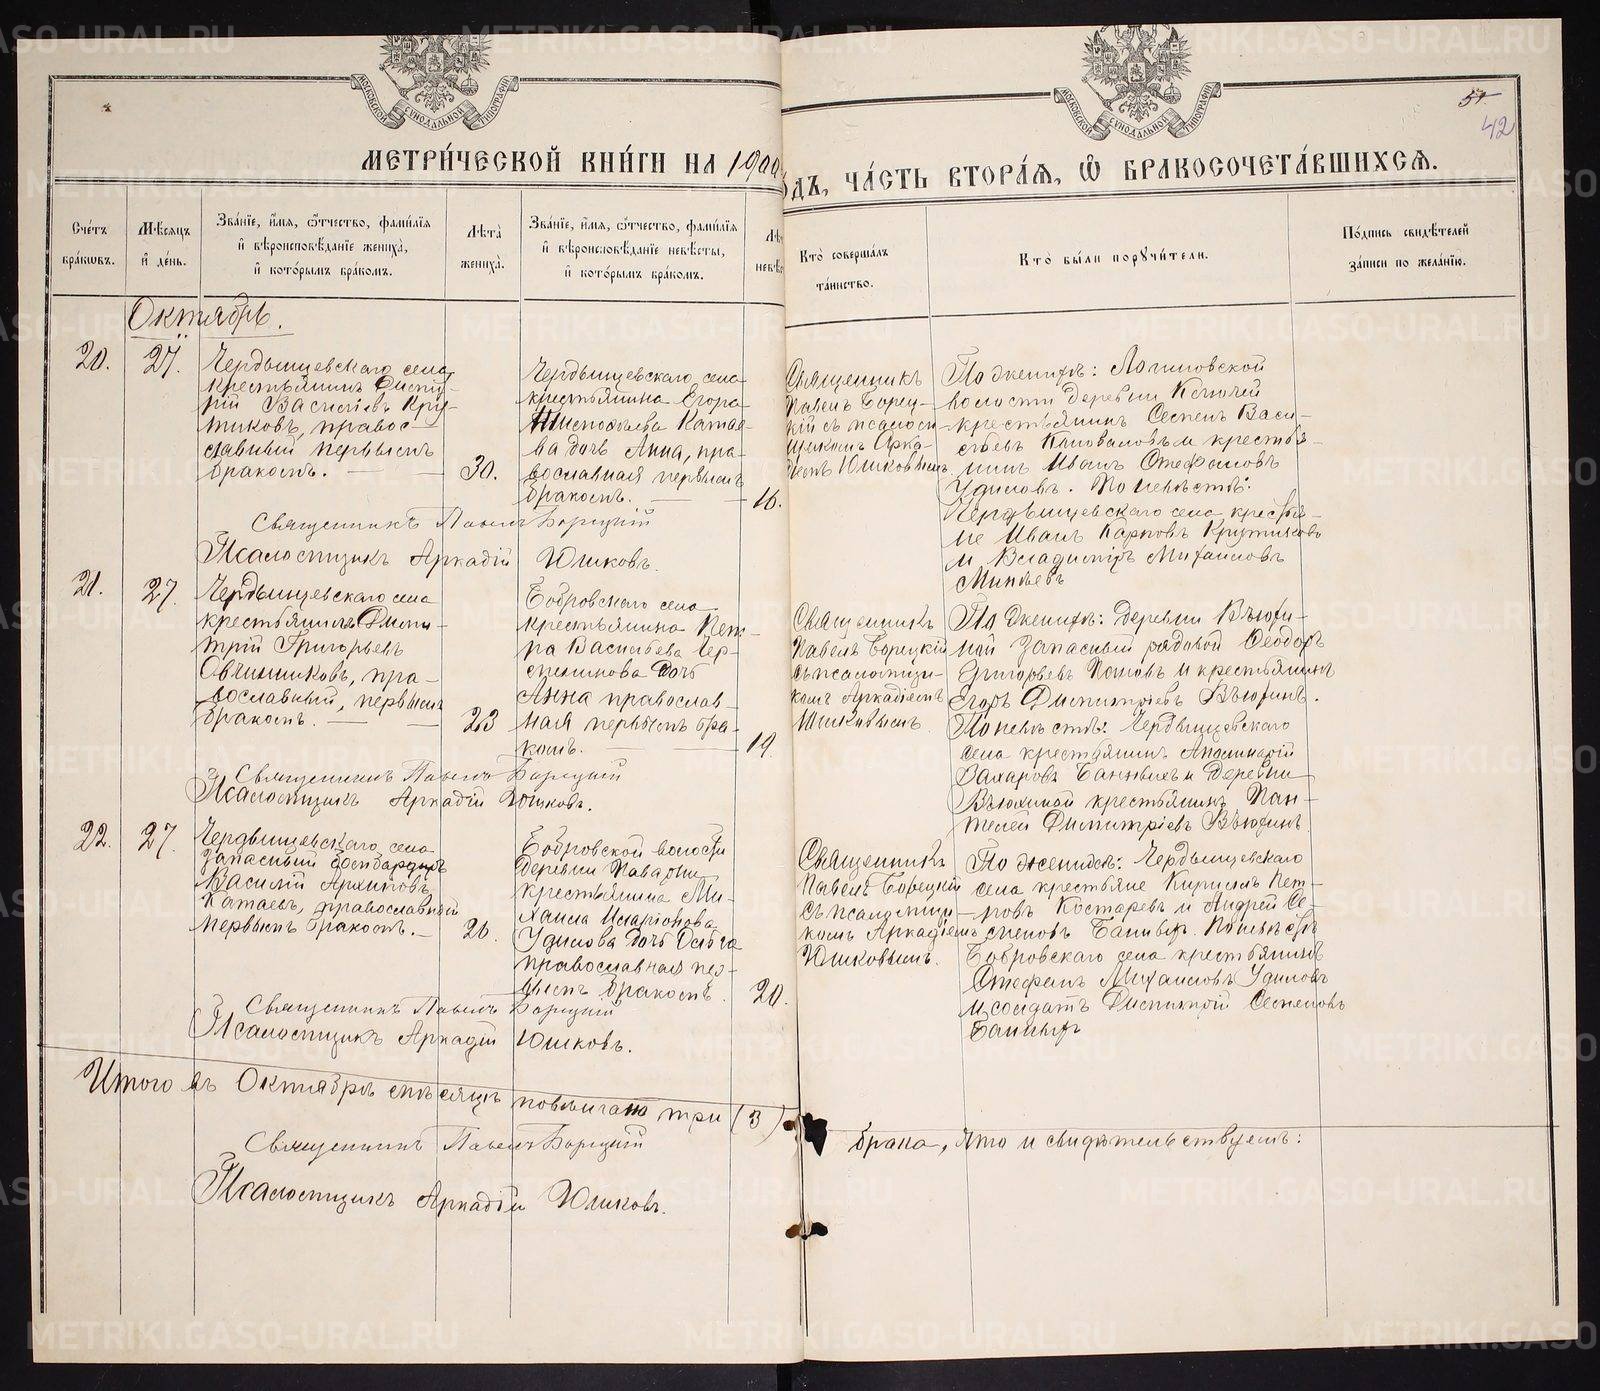 МЕТРИ́ЧЕСКОЙ КНИ́ГИ НА 1900
ОДЪ, ЧА́СТЬ ВТОРА́Я, Ѽ БРАКОСОЧЕТА́ВШИХСѦ.
51
42
МОСКОВСКОЙ СѴНОДАЛЬНОЙ ТИПОГРАФІИ
МОСКОВСКОЙ СѴНОДАЛЬНОЙ ТИПОГРАФІИ
Сче́тъ
бра́кωвъ.
Мѣ́сяцъ
и҆ де́нь.
Зва́нїе, и҆́мѧ, ѻ҆́тчество, фами́лїѧ
и҆ вѣроисповѣ́данїе жениха̀,
и҆ кото́рымъ бра́комъ.
Лѣта̀
жениха̀.
Зва́нїе, и҆́мѧ, ѻ҆́тчество, фами́лїѧ
и҆ вѣроисповѣ́данїе невѣ́сты,
и҆ кото́рымъ бра́комъ.
Кто̀ соверша́лъ
та́инство.
Кто̀ бы́ли поручи́тели.
По́дпись свидѣ́телей
за́писи по жела́нїю.
Октябрь.
20.
27.
Чердынцевскаго села
крестьянинъ Дмит-
рій Васильевъ Кру-
тиковъ, правос-
лавный первымъ
бракомъ.
30.
Чердынцевскаго села
крестьянина Егора
Катае-
ва дочь Анна, пра-
вославная первымъ
бракомъ.
16.
Священникъ
Павелъ Борец-
кій съ псалом-
щикомъ Арка-
діемъ Юшковымъ.
По женихѣ: Логиновской
волости деревни Ключей
крестьянинъ Семенъ Васи-
льевъ Коноваловъ и крестья-
нинъ Иванъ Стефановъ
Удиловъ. По невѣстѣ:
Чердынцевскаго села крестья-
не Иванъ Карповъ Крутиковъ
и Владиміръ Михаиловъ
Минѣевъ
Священникъ Павелъ Борецкій
Псаломщикъ Аркадій Юшковъ.
21.
27.
Чердынцевскаго села
крестьянинъ Дими-
трій Григорьевъ
Овчинниковъ, пра-
вославный, первымъ
бракомъ.
23
Бобровскаго села
крестьянина Пет-
ра Васильева Чер-
емнова дочь
Анна православ-
ная первымъ бра-
комъ.
19.
Священникъ
Павелъ Борецкій
съ псаломщи-
комъ Аркадіемъ
Юшковымъ.
По женихѣ: деревни Вьюхи-
ной запасный рядовой Ѳеодоръ
Григорьевъ Поповъ и крестьянинъ
Егоръ Димитріевъ Вьюхинъ.
По невѣстѣ: Чердынцевскаго
села крестьянинъ Аполинарій
Захаровъ Банныхъ и деревни
Вьюхиной крестьянинъ Пан-
телей Димитріевъ Вьюхинъ
Священникъ Павелъ Борецкій
Псаломщикъ Аркадій Юшковъ.
22.
27.
Чердынцевскаго села
запасный бомбардиръ
Василій Архиповъ
Катаевъ, православный
первымъ бракомъ.
26.
Бобровской волости
деревни
крестьянина Ми-
хаила Иларіонова
Удилова дочь Ольга
православная пер-
вымъ бракомъ.
20.
Священникъ
Павелъ Борецкій
съ псаломщи-
комъ Аркадіемъ
Юшковымъ.
По женихѣ: Чердынцевскаго
села крестьяне Кириллъ Пет-
ровъ Костаревъ и Андрей Се-
меновъ Банныхъ. По невѣстѣ
Бобровскаго села крестьянинъ
Стефанъ Михаиловъ Удиловъ
и солдатъ Димитрій Семеновъ
Банныхъ
Священникъ Павелъ Борецкій
Псаломщикъ Аркадій Юшковъ.
Итого въ Октябрѣ мѣсяцѣ повѣнчано три (3)
брака, что и свидѣтельствуемъ:
Священникъ Павелъ Борецкій
Псаломщикъ Аркадій Юшковъ.
METRIKI.GASO-URAL.RU